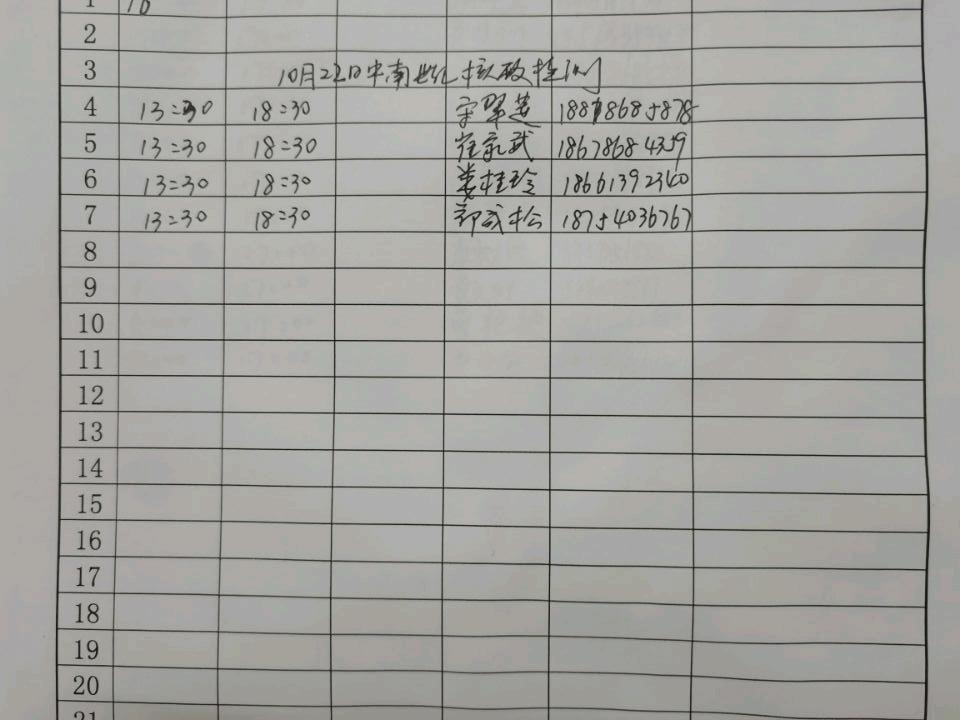 1
2
3 10月22日中南世纪核酸检测
4 13:30 18:30 宋翠莲 18878685878
5 13:30 18:30 崔永武 18678684359
6 13:30 18:30 娄桂玲 18661392340
7 13:30 18:30 郭成松 18754036767
8
9
10
11
12
13
14
15
16
17
18
19
20
21